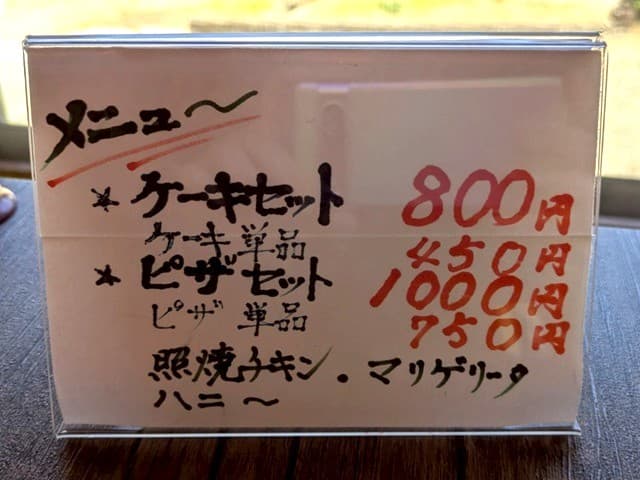 メニュー〜
★ ケーキセット 800円
ケーキ 単品 450円
★ ピザセット 1000円
ピザ 単品 750円
照焼チキン・マリゲリータ
ハニ〜